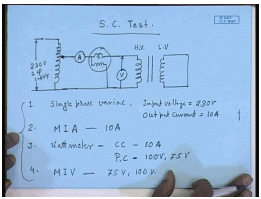 S.C. Test.
H.V. L.V
A
V
230V
1. Single phase variac, Input voltage = 230V
Output current = 10A
2. MIA — 10A
3. Wattmeter — CC — 10A
P.C — 100V, 75V
4. MIV — 75V, 100V.